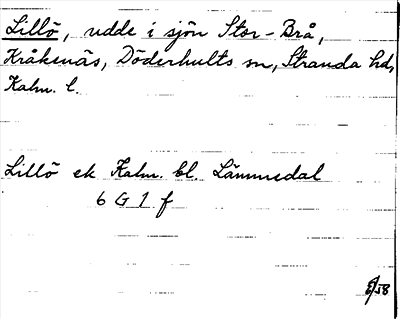 Lillö, udde i sjön Stor-Brå,
Kråkenäs, Döderhults sn, Stranda hd,
Kalm. l.
Lillö ek Kalm. bl. Lämmedal
6 G 1 f